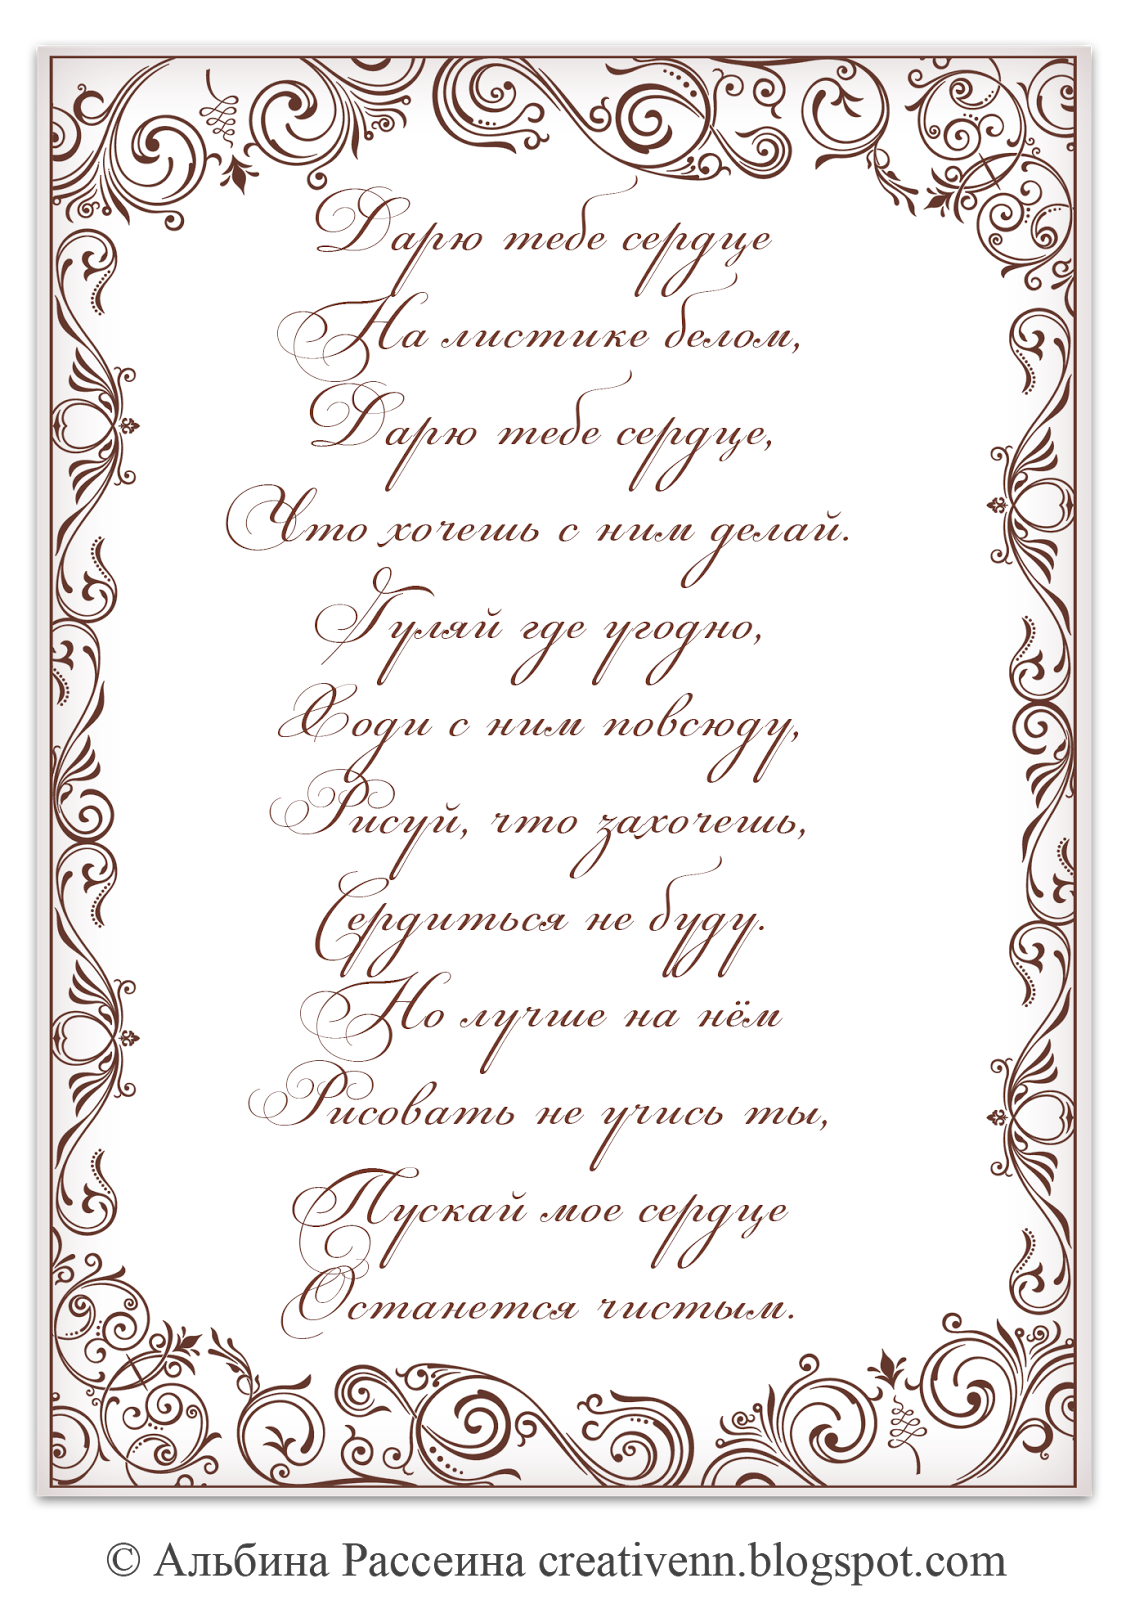 Дарю тебе сердце
На листике белом,
Дарю тебе сердце,
Что хочешь с ним делай.
Гуляй где угодно,
Ходи с ним повсюду,
Рисуй, что захочешь,
Сердиться не буду.
Но лучше на нём
Рисовать не учись ты,
Пускай мое сердце
Останется чистым.
© Альбина Рассеина creativenn.blogspot.com